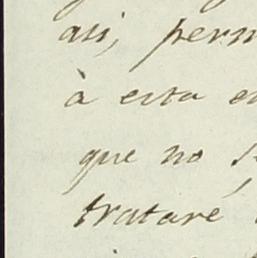 asi, perm
à esta e
que no s
trataré